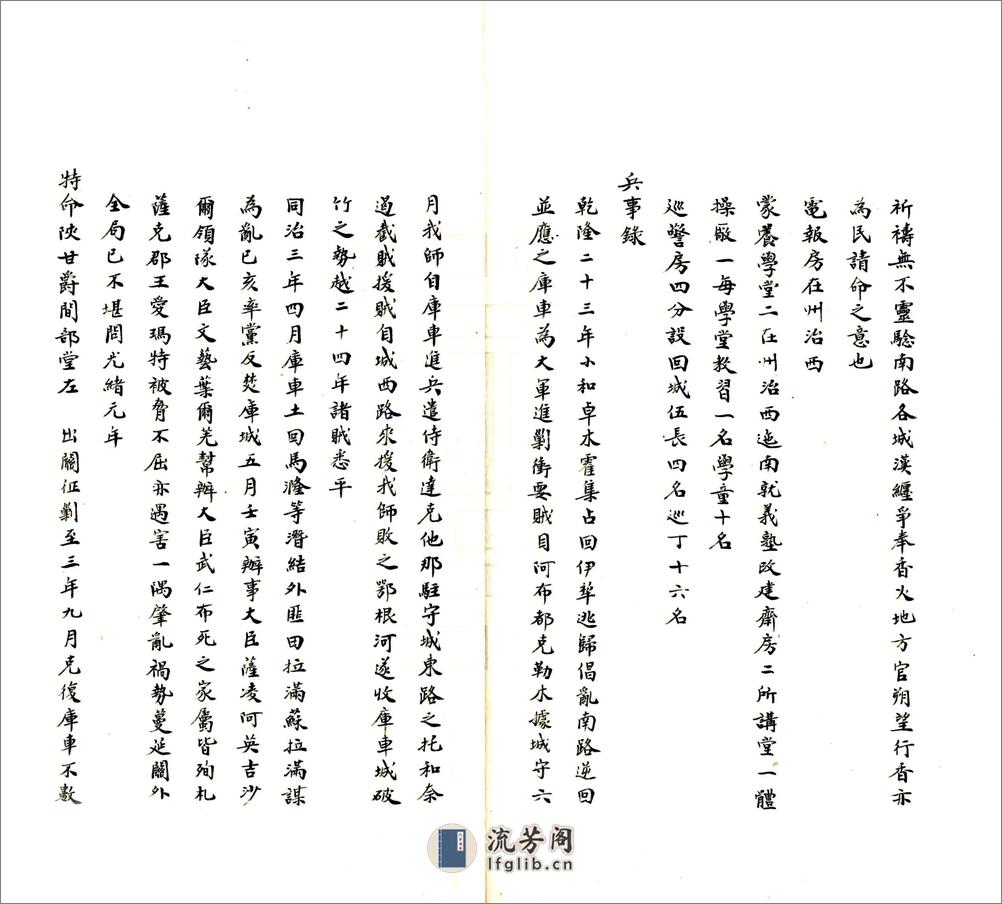 祈禱無不靈驗南路各城漢纏爭奉香火地方官朔望行香亦
為民請命之意也
電報房在州治西
蒙養學堂二在州治西迤南就義塾改建齋房二所講堂一體
操厰一每學堂教習一名學童十名
巡警房四分設回城伍長四名巡丁十六名
兵事錄
乾隆二十三年小和卓木霍集占回伊犂逃歸倡亂南路逆回
並應之庫車為大軍進剿衝要賊目阿布都克勒木據城守六
月我師自庫車進兵遣侍衛達克他那駐守城東路之托和奈
遏截賊援賊自城西路來援我師敗之鄂根河遂收庫車城破
竹之勢越二十四年諸賊悉平
同治三年四月庫車土回馬漋等潛結外匪田拉滿蘇拉滿謀
為亂已亥率黨反焚庫城五月壬寅辦事大臣薩凌阿英吉沙
爾領隊大臣文藝葉爾羌幫辦大臣武仁布死之家屬皆殉札
薩克郡王愛瑪特被脅不屈亦遇害一隅肇亂禍勢蔓延關外
全局已不堪問光緒元年
特命陝甘爵閣部堂左 出關征剿至三年九月克復庫車不數
流芳阁
lfglib.cn